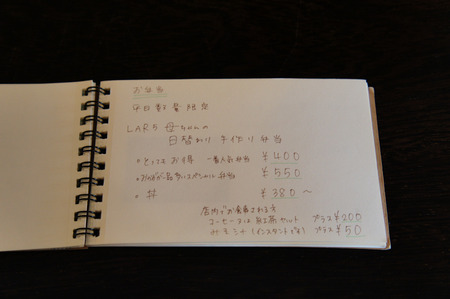 お弁当
平日数量限定
LARS 母ちゃんの
日替わり 手作り弁当
・とってもお得 一番人気弁当 ¥400
スペシャル弁当 ¥550
・丼 ¥380〜
店内でお食事される方
コーヒー又は紅茶セット プラス¥200
みそ汁(インスタント) プラス¥50